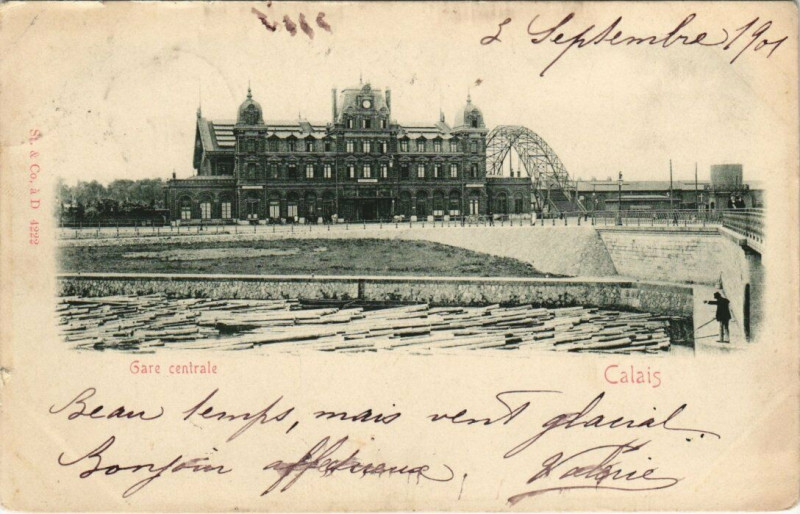 3 Septembre 1901
St. & Co. à D 4222
Gare centrale
Calais
Beau temps, mais vent glacial.
Bonjour affectueux, Valérie